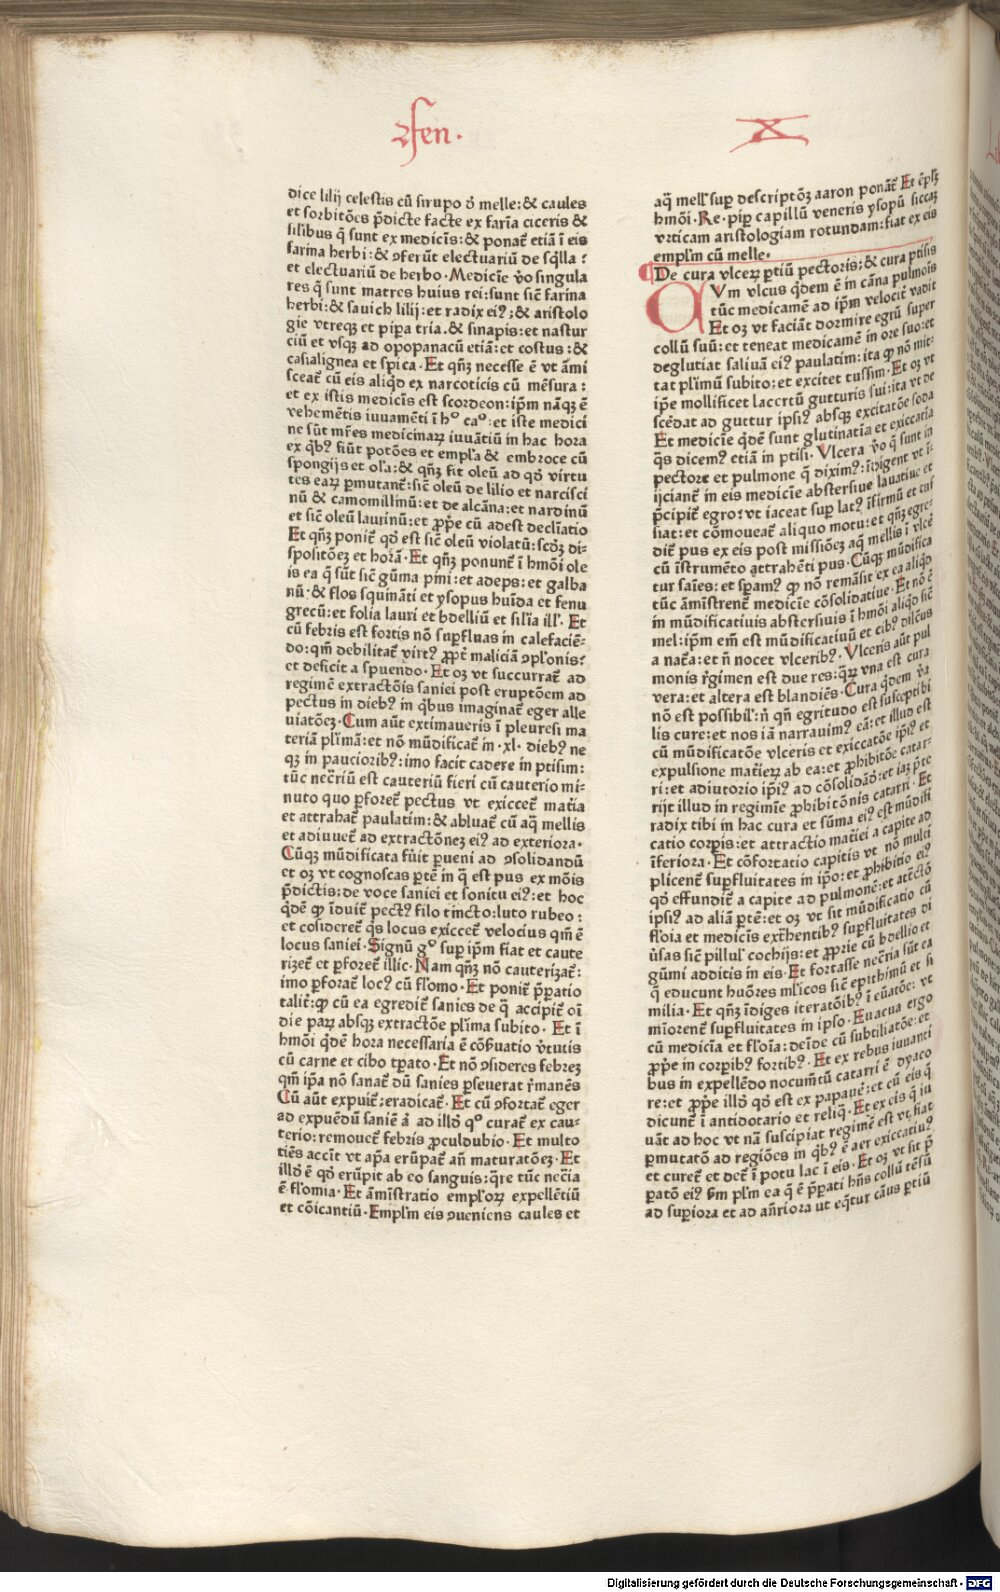 Fen.
X
dice lilij celestis cū sirupo ō melle: & caules
et sorbitōes p̄dicte facte ex farīa ciceris &
silibus q̄ sunt ex medicīs: & ponat̄ etiā ī eis
farina herbi: & ↄferūt electuariū de sq̄lla ?
et electuariū de herbo. Medicīe v̄o singula
res q̄ sunt matres huius rei: sunt sic̄ farina
herbi: & sauich lilij: et radix eiꝰ; & aristolo
gie vtreqꝫ et pipa tria. & sinapis: et nastur
ciū et vsqꝫ ad opopanacū etiā: et costus: &
casialignea et spica. Et qn̄qꝫ necesse ē vt āmi
sceat̄ cū eis aliqḋ ex narcoticis cū mēsura:
et ex istis medicīs est scordeon: ipm̄ nāqꝫ ē
vehemētis iuuamēti ī hº caº: et iste medici
ne sūt mr̄es medicinaꝝ iuuātiū in hac hora
ex qḃꝰ fiūt potōes et emplā & embroce cū
spongijs et olā: & qn̄qꝫ fit oleū ad qḋ virtu
tes eaꝝ pmutant̄: sic̄ oleū de lilio et narcisci
nū & camomillinū: et de alcāna: et nardinū
et sic̄ oleū laurinū: et ꝓp̄e cū adest decliatio
Et qn̄qꝫ ponit̄ qḋ est sic̄ oleū violatū: scḋꝫ di-
spositōeꝫ et horā. Et qn̄qꝫ ponunt̄ ī hmōi ole
is ea q̄ sūt sic̄ gūma pini: et adeps: et galba
nū. & flos squināti et ysopus huīda et fenu
grecū: et folia lauri et bdelliū et silīa ill'. Et
cū febris est fortis nō supfluas in calefaciē-
do: qm̄ debilitat̄ virtꝰ ꝓpt̄ maliciā ↄplōnis?
et deficit a spuendo. Et oꝫ vt succurrat̄ ad
regimē extractōis saniei post eruptōem ad
pectus in diebꝰ in qḃus imaginat̄ eger alle
uiatōeꝫ. Cum aūt extimaueris ī pleuresi ma
teriā pl'imā: et nō mūdificat̄ in .xl. diebꝰ ne
qꝫ in paucioribꝰ: imo facit cadere in ptisim:
tūc nec̄riū est cauteriū fieri cū cauterio mi-
nuto quo pforet̄ pectus vt exiccet̄ mat̄ia
et attrahat̄ paulatim: & abluat̄ cū aq̄ mellis
et adiuuet̄ ad extractōneꝫ eiꝰ ad exteriora.
Cūqꝫ mūdificata fūit pueni ad ↄsolidandū
et oꝫ vt cognoscas ptē in q̄ est pus ex mōis
p̄dictis: de voce saniei et sonitu eiꝰ: et hoc
qḋē ꝙ īduit̄ pectꝰ filo tincto: luto rubeo:
et cōsideret̄ qs locus exiccet̄ velocius qm̄ ē
locus saniei. Signū gº sup ipm̄ fiat et caute
rizet̄ et pforet̄ illic. Nam qn̄qꝫ nō cauterizat̄:
imo pforat̄ locꝰ cū fl'omo. Et ponit̄ p̄patio
talit̄: ꝙ cū ea egredit̄ sanies de q̄ accipit̄ oī
die paꝝ absqꝫ extractōe pl'ima subito. Et ī
hmōi qḋē hora necessaria ē cōs̄uatio v̄tutis
cū carne et cibo tpato. Et nō ↄsideres febreꝫ
qm̄ ipā nō sanat̄ dū sanies pseuerat r̄manēs
Cū aūt expuit̄: eradicat̄. Et cū ↄfortat̄ eger
ad expuēdū saniē ā ad illḋ qº curat̄ ex cau-
terio: remouet̄ febris ꝓculdubio. Et multo
tiēs accīt vt apā erūpat̄ an̄ maturatōeꝫ. Et
illḋ ē qḋ erūpit ab eo sanguis: qre tūc nec̄ia
ē fl'omia. Et āministratio empl'oꝝ expellētiū
et cōicantiū. Empl'm eis ↄueniens caules et
aq̄ mell' sup descriptōꝫ aaron ponāt̄ Et ēpl'ꝫ
hmōi. Re. pip capillū veneris ysopū siccaꝫ
vrticam aristologiam rotundam: fiat ex eis
empl'm cū melle.
De cura vlceꝝ ptiū pectoris: & cura ptisis
CVm vlcus qḋem ē in cāna pulmois
tūc medicamē ad ipm̄ velocit̄ vadit
Et oꝫ vt faciāt dormire egrū super
collū suū: et teneat medicamē in ore suo: et
deglutiat saliuā eiꝰ paulatim: ita ꝙ nō mit-
tat pl'imū subito: et excitet tussim. Et oꝫ vt
ipē mollificet lacertū gutturis sui: ita vt de
scēdat ad guttur ipsiꝰ absqꝫ excitatōe soda
Et medicīe qḋē sunt glutinatia et exiccatia
q̄s dicemꝰ etiā in ptisi. Vlcera v̄o q̄ sunt in
pectore et pulmone q̄ diximꝰ: īdigent vt ī-
ijciant̄ in eis medicīe absterśiue lauatiue et
p̄cipit̄ egro: vt iaceat sup latꝰ īfirmū et tus
siat: et cōmoueat̄ aliquo motu: et qn̄qꝫ egre-
dit̄ pus ex eis post missiōeꝫ aq̄ mellis ī vlcē
cū īstrumēto attrahēti pus. Cūqꝫ mūdifica
tur saīes: et spamꝰ ꝙ nō remāsit ex ea aliqḋ
tūc āmistrent̄ medicīe cōsolidatiue. Et nō ē
in mūdificatiuis absterśiuis ī hmōi aliqḋ sic̄
mel: ipm̄ em̄ est mūdificatiuū et cibꝰ dilcūs
a nat̄a: et n̄ nocet vlceribꝰ. Vlceris aūt pul
monis r̄gimen est due res: qꝝ vna est cura
vera: et altera est blandiēs. Cura qḋem v̄a
nō est possibil': n̄ qn̄ egritudo est susceptibi
lis cure: et nos iā narrauimꝰ eā: et illud est
cū mūdificatōe vlceris et exiccatōe ipiꝰ et
expulsione mat̄ieꝝ ab ea: et ꝓhibitōe catar-
ri: et adiutorio ipiꝰ ad cōsolidāḋ: et iaꝫ p̄te
rijt illud in regimīe ꝓhibitōnis catarri. Et
radix tibi in hac cura et sūma eiꝰ est mūdifi
catio corpis: et attractio mat̄iei a capite ad
īferiora. Et cōfortatio capitis vt nō multi
plicent̄ supfluitates in ipō: et ꝓhibitio eiꝰ
qḋ effundit̄ a capite ad pulmonē: et atētō
ipsiꝰ ad aliā ptē: et oꝫ vt sit mūdificatio cū
fl'oia et medicīs ext̄hentibꝰ supfluitates di
ūsas sic̄ pillul' cochijs: et ꝓprie cū bdellio et
gūmi additis in eis. Et fortasse nec̄ria sūt ea
q̄ educunt huōres ml'icos sic̄ epithimū et si
milia. Et qn̄qꝫ īdiges iteratōibꝰ ī eūatōe: vt
mīorent̄ supfluitates in ipso. Euacua ergo
cū medicīa et fl'oīa: deīde cū subtiliatōe: et
ꝓp̄e in corpibꝰ fortibꝰ. Et ex rebus iuuanti
bus in expellēdo nocumētū catarri ē dyaco
re: et ꝓp̄e illḋ qḋ est ex papauē: et cū eis q̄
dicunt̄ ī antidotario et reliq̄. Et ex eis q̄ iu
uāt ad hoc vt nā suscipiat regimē est vt fiat
pmutatō ad regiōes in qḃꝰ ē aer exiccatiuꝰ
et curet̄ et det̄ ī potu lac ī eis. Et oꝫ vt sit p̄
patō eiꝰ ẛm pl'm ea q̄ ē p̄pati hn̄s collū tēsū
ad supiora et ad an̄riora ut eq̄tur cāus ptiū
Digitalisierung gefördert durch die Deutsche Forschungsgemeinschaft - DFG